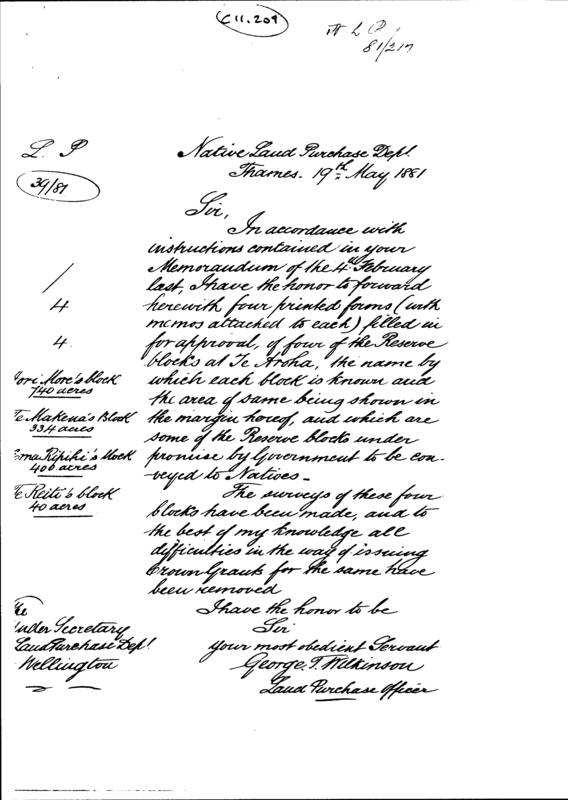 C11.209
N L P
81/217
L. P
39/81
Native Land Purchase Dept.
Thames. 19th May 1881
Sir,
In accordance with
instructions contained in your
Memorandum of the 4th February
last, I have the honor to forward
herewith four printed forms (with
memos attached to each) filled in
for approval, of four of the Reserve
blocks at Te Aroha, the name by
which each block is known and
the area of same being shown in
the margin hereof, and which are
some of the Reserve blocks under
promise by Government to be con-
veyed to Natives -
The surveys of these four
blocks have been made, and to
the best of my knowledge all
difficulties in the way of issuing
Crown Grants for the same have
been removed
I have the honor to be
Sir
your most obedient Servant
George. T. Wilkinson
Land Purchase Officer
/
4
4.
More's block
740 acres
Te Makena's Block
334 acres
Ripihi's block
400 acres
Te Reiti's block
40 acres
The
Under Secretary
Land Purchase Dept.
Wellington